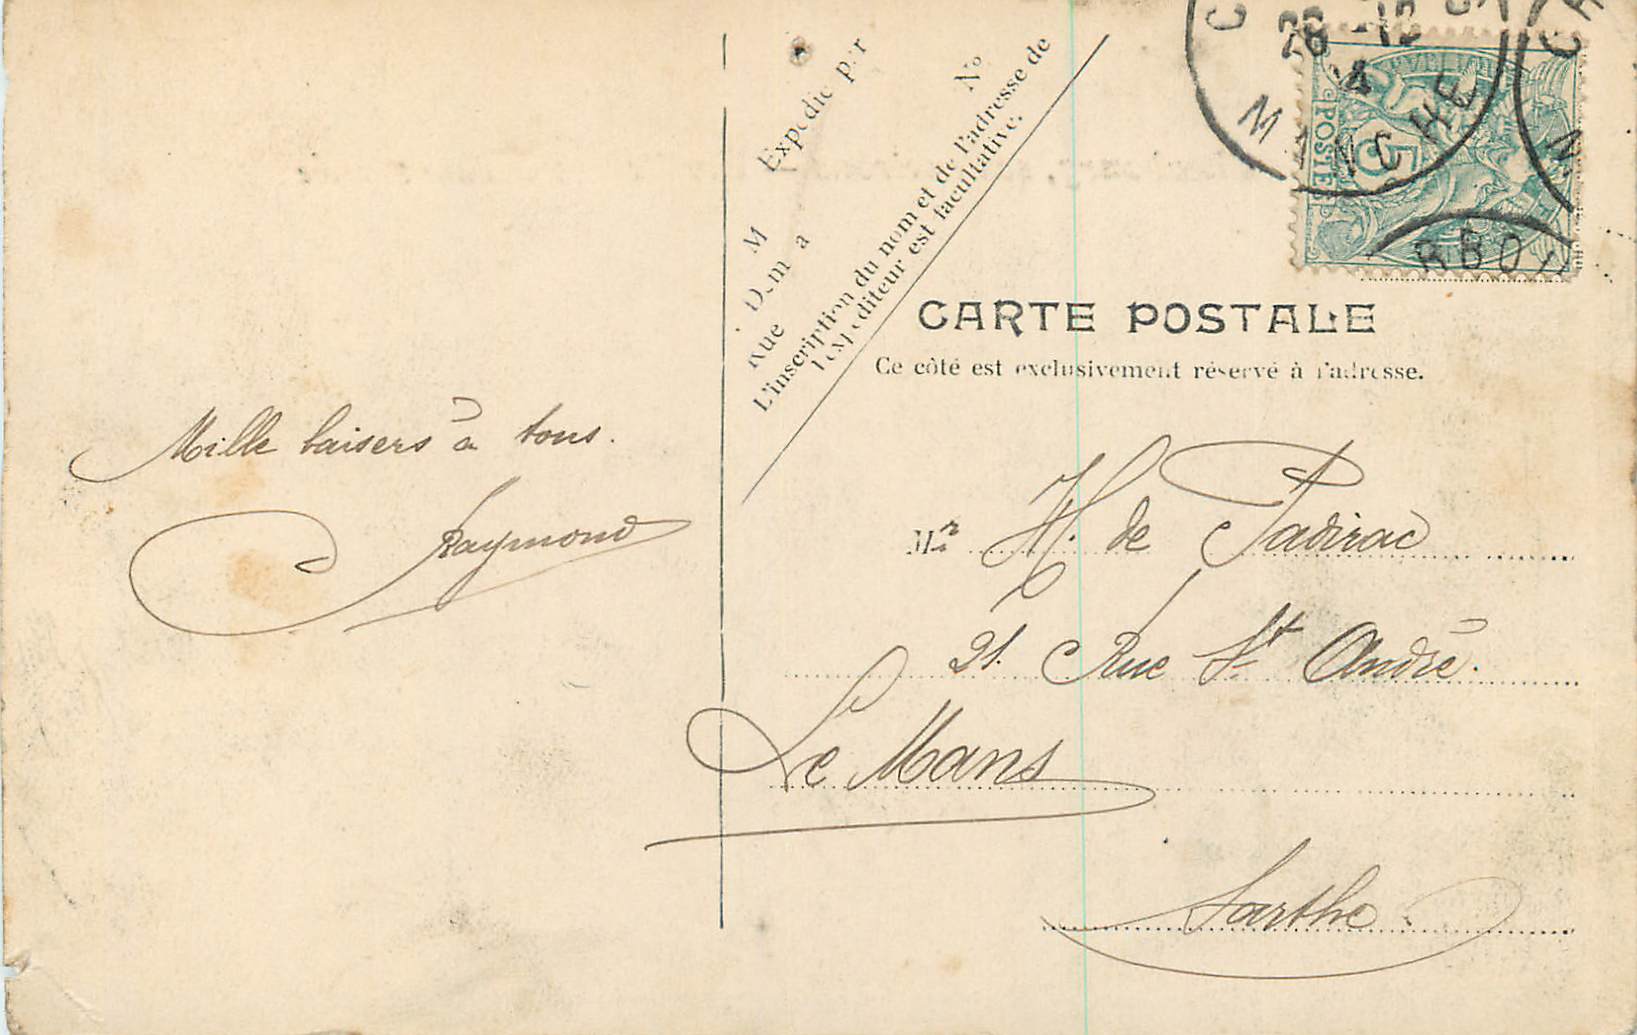 Mille baisers à tous.
Raymond
Expédié par
M
Dem à
Rue
N°
L'inscription du nom et de l'adresse de
l'expéditeur est facultative.
MANCHE
RBO
POSTES
5
CARTE POSTALE
Ce côté est exclusivement réservé à l'adresse.
Mr H. de Padirac
21. Rue St André.
Le Mans
Sarthe.